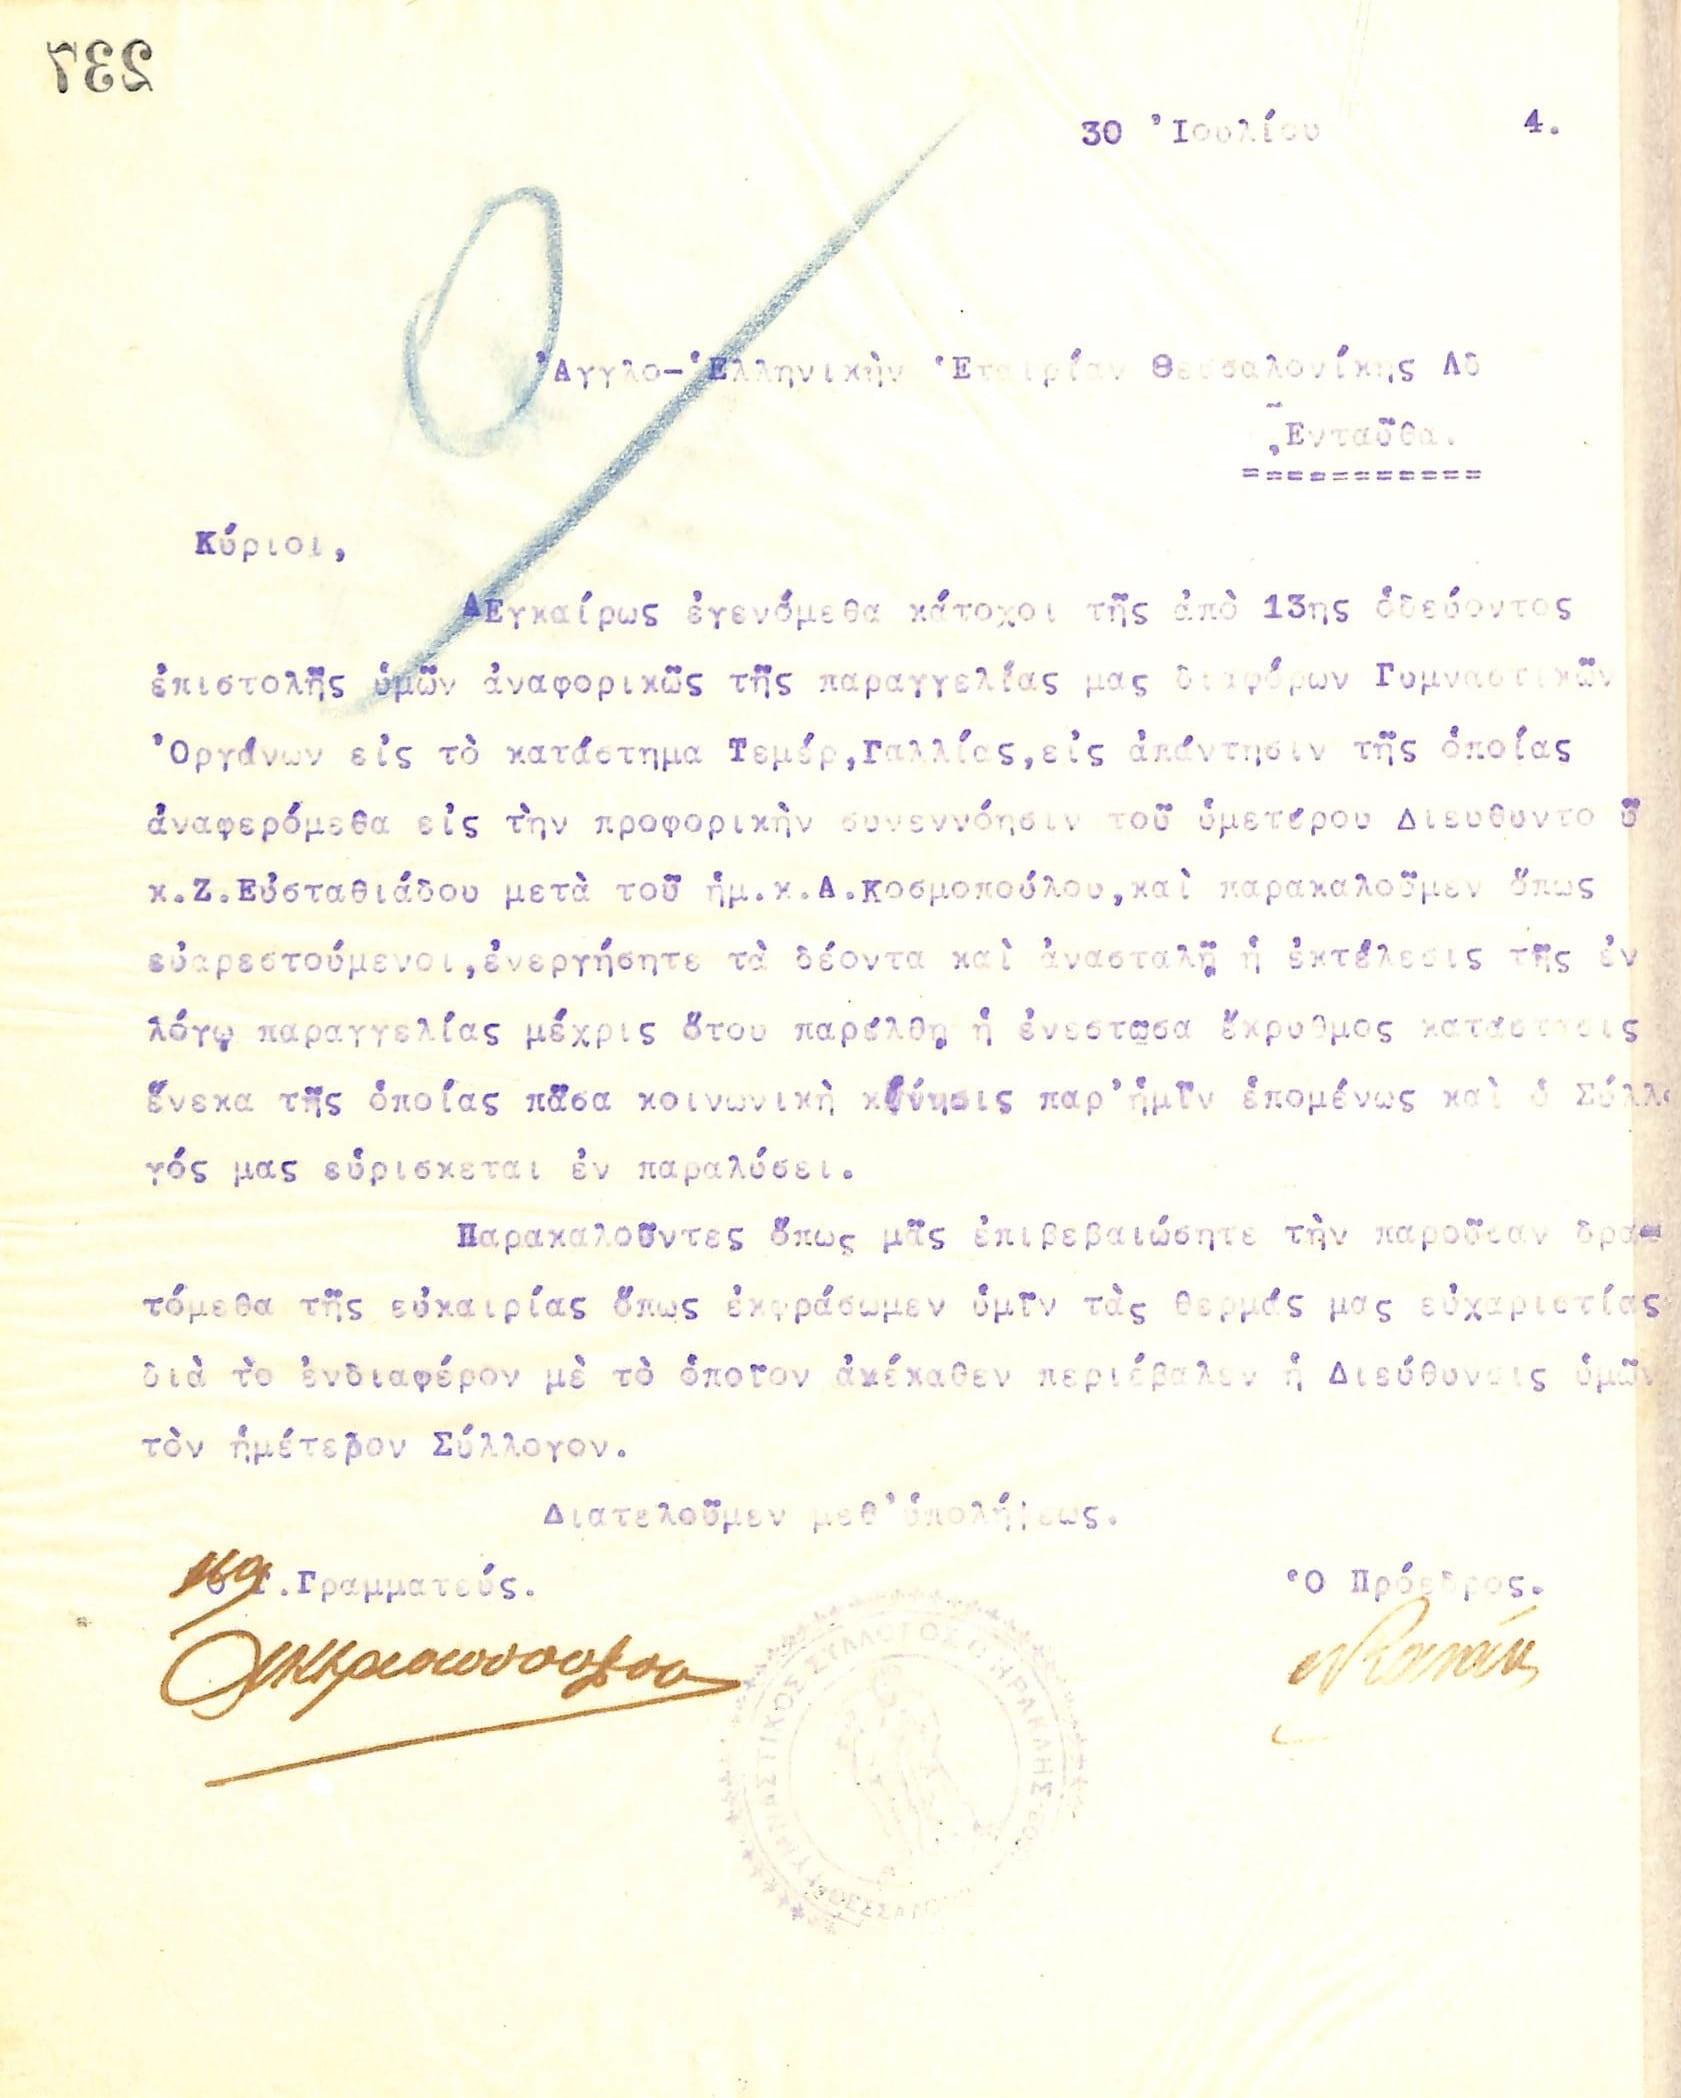 237
30 Ἰουλίου 4.
Ἀγγλο-Ἑλληνικὴν Ἑταιρίαν Θεσσαλονίκης Λδ
Ἐνταῦθα.
===========
Κύριοι,
Εγκαίρως ἐγενόμεθα κάτοχοι τῆς ἀπὸ 13ης ὁδεύοντος
ἐπιστολῆς ὑμῶν ἀναφορικῶς τῆς παραγγελίας μας διαφόρων Γυμναστικῶν
Ὀργάνων εἰς τὸ κατάστημα Τεμέρ,Γαλλίας,εἰς ἀπάντησιν τῆς ὁποίας
ἀναφερόμεθα εἰς τὴν προφορικὴν συνεννόησιν τοῦ ὑμετέρου Διευθυντο ῦ
κ.Ζ.Εὐσταθιάδου μετὰ τοῦ ἡμ.κ.Α.Κοσμοπούλου,καὶ παρακαλοῦμεν ὅπως
εὐαρεστούμενοι,ἐνεργήσητε τὰ δέοντα καὶ ἀνασταλῇ ἡ ἐκτέλεσις τῆς ἐν
λόγῳ παραγγελίας μέχρις ὅτου παρέλθῃ ἡ ἐνεστῶσα ἔκρυθμος κατάστασις
ἕνεκα τῆς ὁποίας πᾶσα κοινωνικὴ κίνησις παρ'ἡμῖν ἑπομένως καὶ ὁ Σύλλο
γός μας εὑρίσκεται ἐν παραλύσει.
Παρακαλοῦντες ὅπως μᾶς ἐπιβεβαιώσητε τὴν παροῦσαν δρα-
τόμεθα τῆς εὐκαιρίας ὅπως ἐκφράσωμεν ὑμῖν τὰς θερμάς μας εὐχαριστίας
διὰ τὸ ἐνδιαφέρον μὲ τὸ ὁποῖον ἀκέκαθεν περιέβαλεν ἡ Διεύθυνσις ὑμῶν
τὸν ἡμέτερον Σύλλογον.
Διατελοῦμεν μεθ'ὑπολήψεως.
Ὁ Γ.Γραμματεύς. Ὁ Πρόεδρος.
ΓΥΜΝΑΣΤΙΚΟΣ ΣΥΛΛΟΓΟΣ Ο ΗΡΑΚΛΗΣ